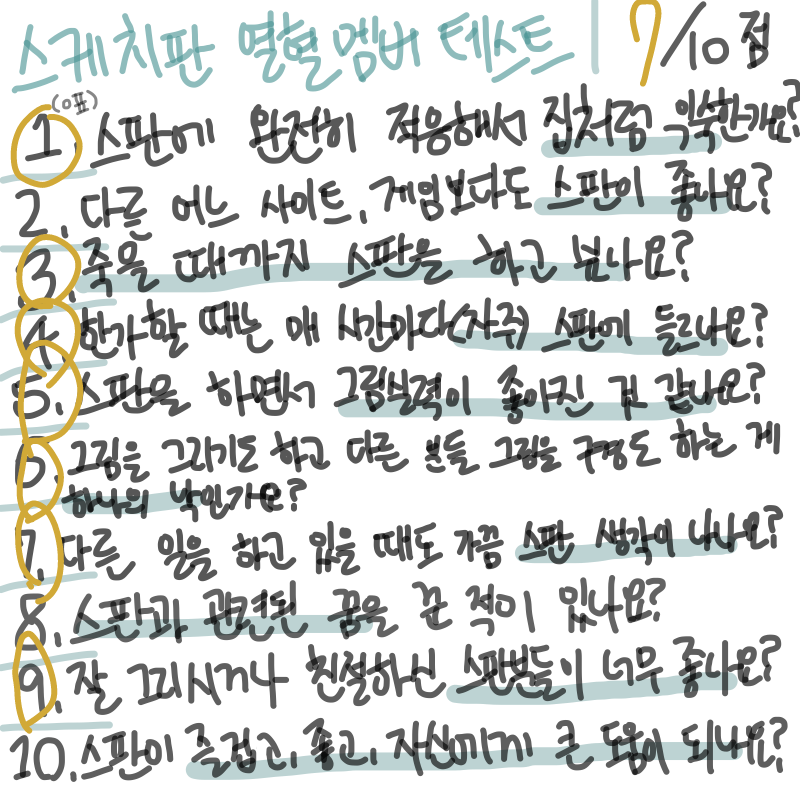 스케치판 열혈 멤버 테스트 7/10점
(예표)
1. 스판에 완전히 적응해서 집처럼 익숙한가요?
2. 다른 어느 사이트, 게임보다도 스판이 좋나요?
3. 죽을 때까지 스판을 하고 싶나요?
4. 한가할 때는 매 시간마다(자주) 스판에 들르나요?
5. 스판을 하면서 그림실력이 좋아진 것 같나요?
6. 그림을 그리기도 하고 다른 분들 그림을 구경도 하는 게
하나의 낙인가요?
7. 다른 일을 하고 있을 때도 가끔 스판 생각이 나나요?
8. 스판과 관련된 꿈을 꾼 적이 있나요?
9. 잘 그리시거나 친절하신 스판분들이 너무 좋나요?
10. 스판이 즐겁고, 좋고, 자신에게 큰 도움이 되나요?